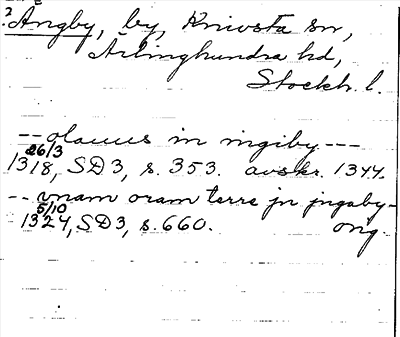 ? Ångby, by, Knivsta sn,
Ärlinghundra hd,
Stockh. l.
-- olauus in ingiby ---
26/3
1318, SD3, s. 353. avskr. 1344.
-- vnam oram terre jn jngaby -
5/10
1324, SD3, s. 660. ong